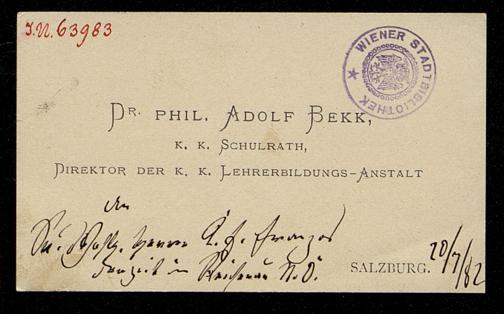 J.N. 63983
WIENER STADTBIBLIOTHEK
DR. PHIL. ADOLF BEKK,
K. K. SCHULRATH,
DIREKTOR DER K. K. LEHRERBILDUNGS-ANSTALT
An
Sr. Herrn K. E. Franzos
derzeit in Reichenau N.Ö.
SALZBURG. 20/7/82